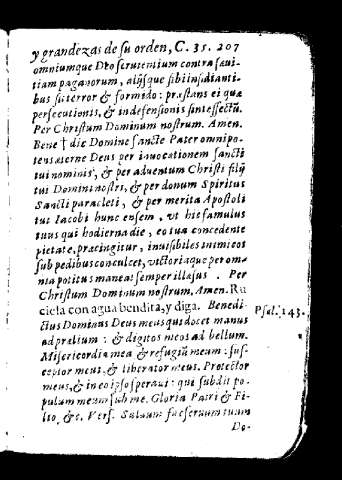 y grandezas de su orden, C. 35. 207
omniumque Deo scrutentium contra sæui-
tiam paganorum, alijsque sibi insidianti-
bus sit terror & formido: præstans ei quæ
persecutionis, & indefensionis sint effectũ.
Per Christum Dominum nostrum. Amen.
Bene † dic Domine sancte Pater omnipo-
tens æterne Deus per inuocationem sancti
tui nominis, & per aduentum Christi filij
tui Domini nostri, & per donum Spiritus
Sancti paracleti, & per merita Apostoli
tui Iacobi hunc ensem, vt hic famulus
tuus qui hodierna die, eo tua concedente
pietate, præcingitur, inuisibiles inimicos
sub pedibus conculcet, victoriaque per om-
nia potitus maneat semper illæsus. Per
Christum Dominum nostrum, Amen. Ru
ciela con agua bendita, y diga. Benedi-
ctus Dominus Deus meus qui docet manus
ad prælium: & digitos meos ad bellum.
Misericordia mea & refugiũ meum: sus-
ceptor meus, & liberator meus. Protector
meus, & in eo ipso speraui: qui subdit po-
pulum meum sub me. Gloria Patri & Fi-
lio, &c. Vers. Saluum fac seruum tuum
Do-
Psal. 143.